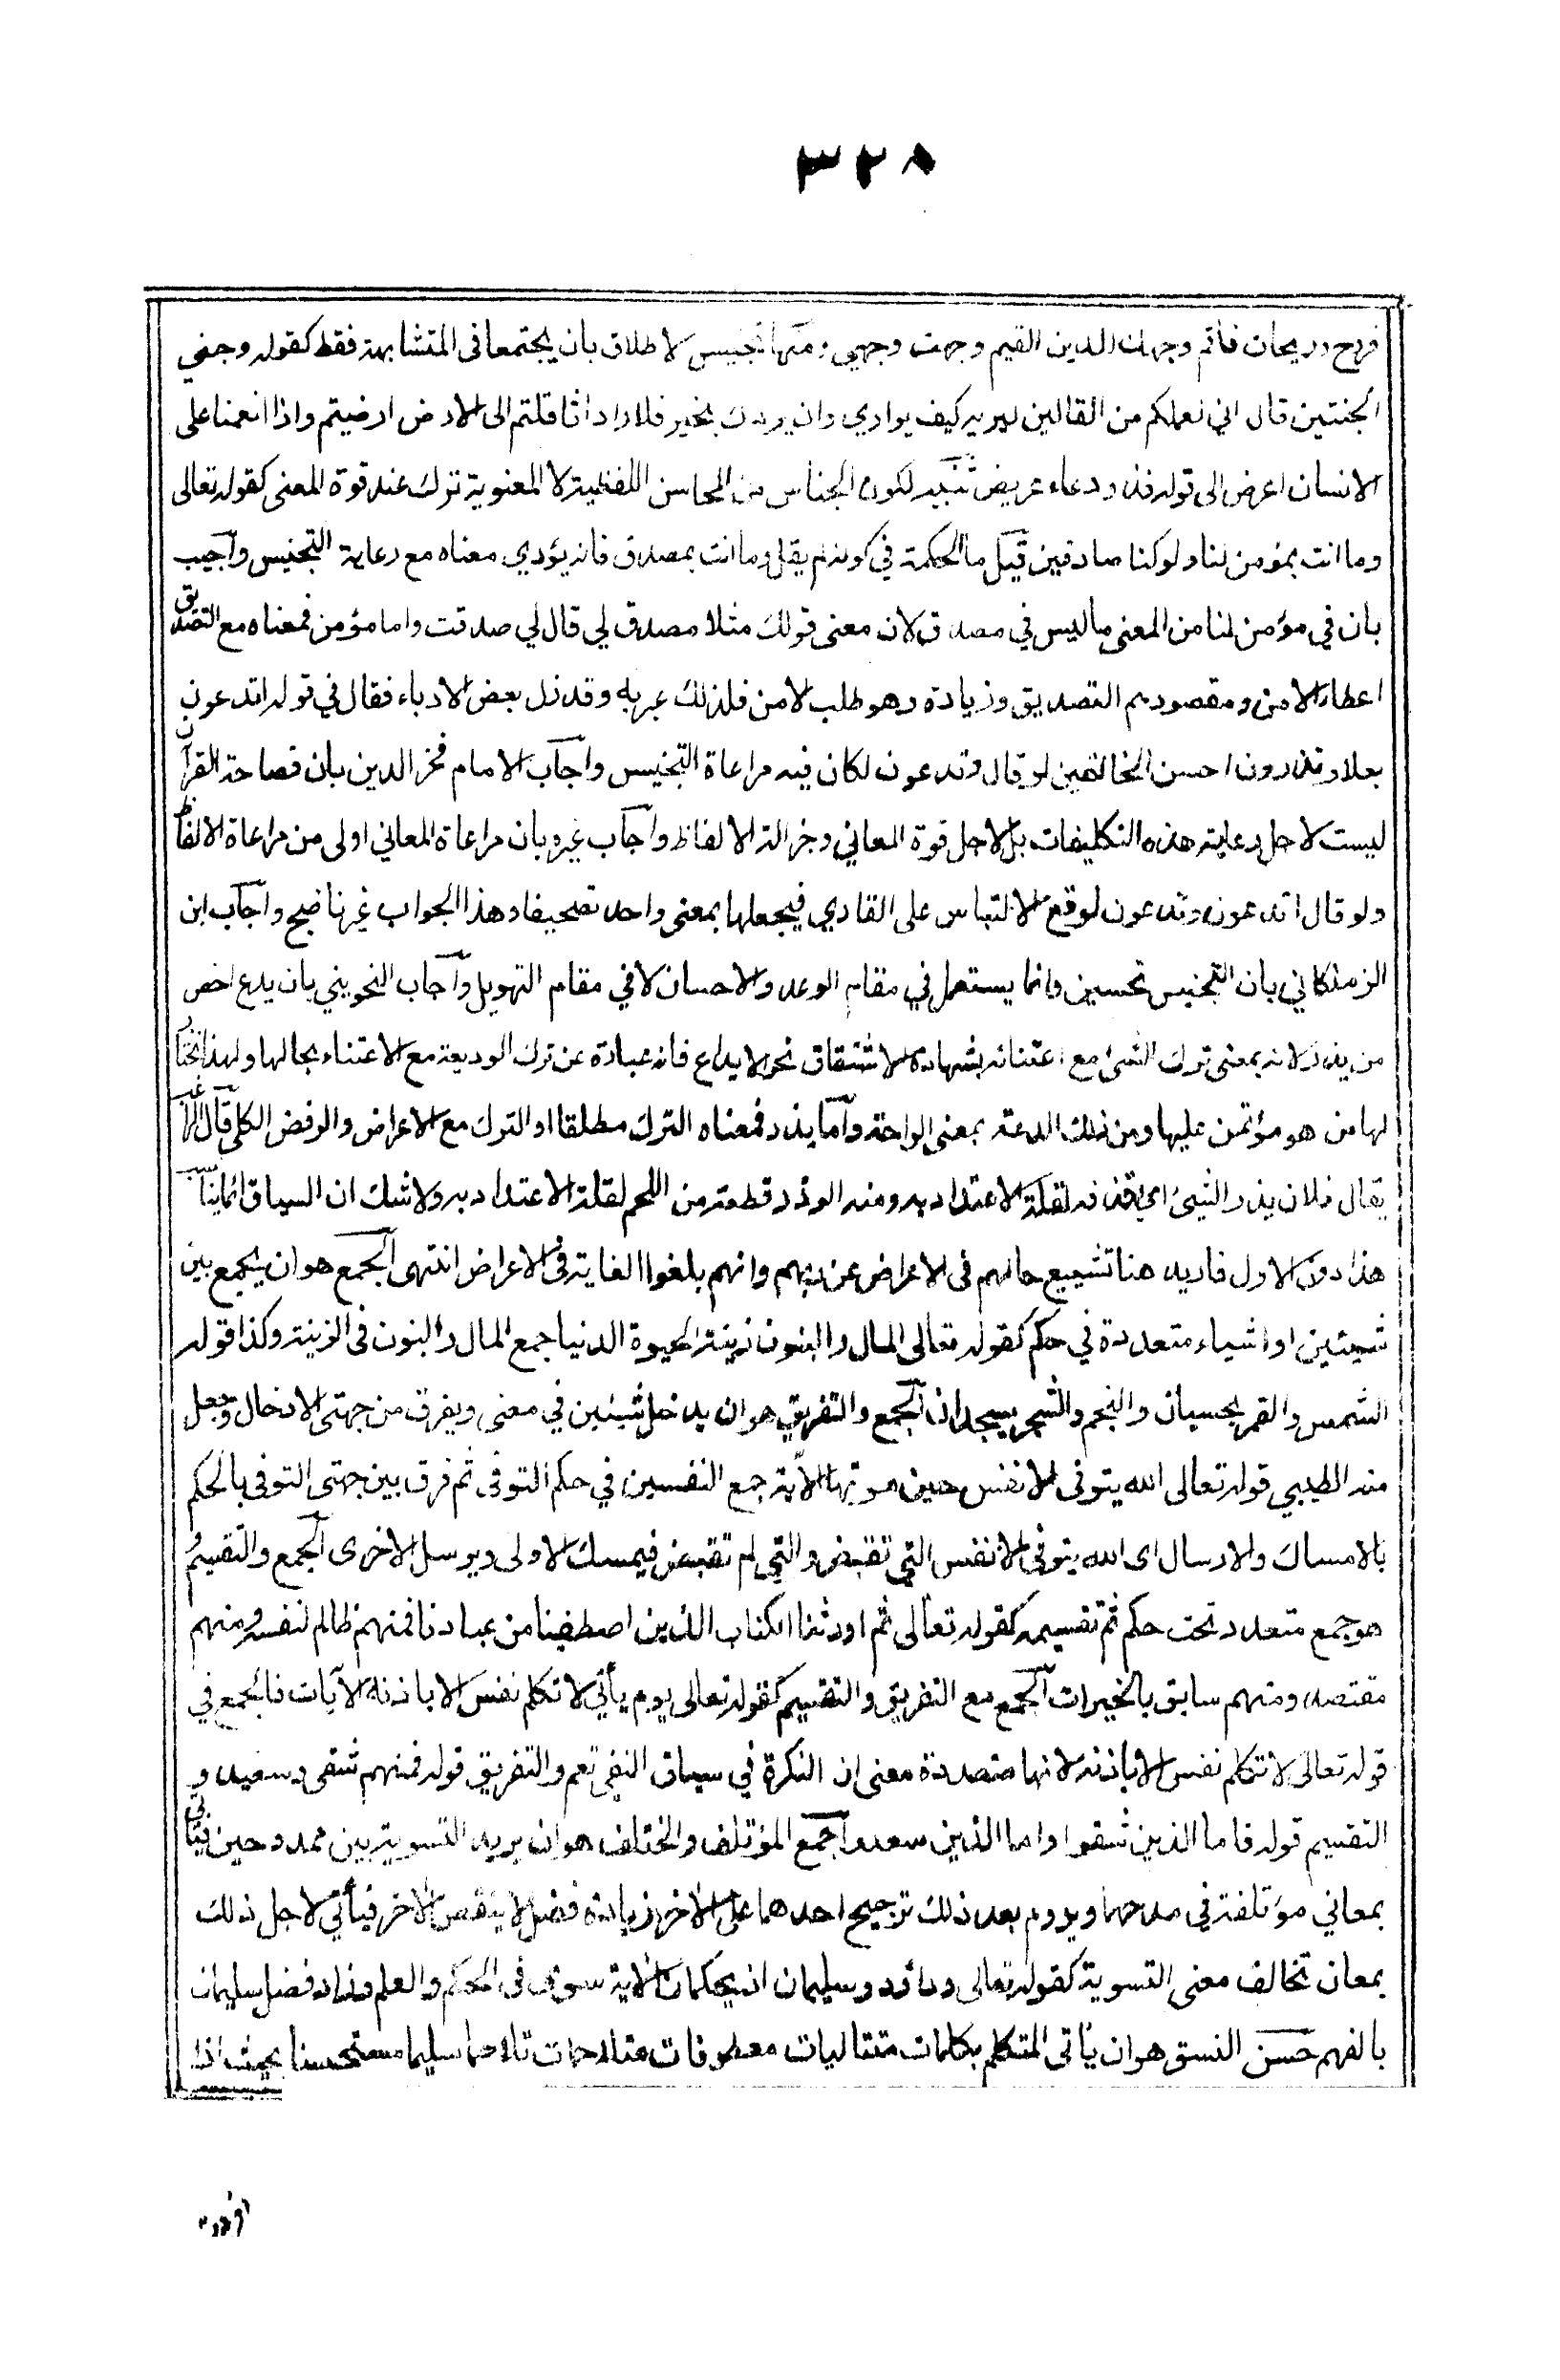 ٣٢٨
فروح وريحان فاقم وجهك للدين القيم وجهت وجهي ومنها تجنيس الاطلاق بان يجتمعا في المتشابهة فقط كقوله وجنى
الجنتين قال اني لعملكم من القالين ليريه كيف يواري وان يردك بخير فلا راد اثاقلتم الى الارض ارضيتم واذا انعمنا على
الانسان اعرض الى قوله فذو دعاء عريض تنبيه لكون الجناس من المحاسن اللفظية لا المعنوية ترك عند قوة المعنى كقوله تعالى
وما انت بمؤمن لنا ولو كنا صادقين قيل ما الحكمة في كونه لم يقل وما انت بمصدق فانه يؤدي معناه مع رعاية التجنيس واجيب
بان في مؤمن لنا من المعنى ما ليس في مصدق لان معنى قولك مثلا مصدق لي قال لي صدقت واما مؤمن فمعناه مع التصديق
اعطاء الامن ومقصودهم التصديق وزيادة وهو طلب الامن فلذلك عبر به وقد زل بعض الادباء فقال في قوله اتدعون
بعلا وتذرون احسن الخالقين لو قال وتدعون لكان فيه مراعاة التجنيس واجاب الامام فخر الدين بان فصاحة القرآن
ليست لاجل رعاية هذه التكليفات بل لاجل قوة المعاني وجزالة الالفاظ واجاب غيره بان مراعاة المعاني اولى من مراعاة الالفاظ
ولو قال اتدعون وتدعون لوقع الالتباس على القاري فيجعلها بمعنى واحد تصحيفا وهذا الجواب غير ناضج واجاب ابن
الزملكاني بان التجنيس تحسين وانما يستعمل في مقام الوعد والاحسان لا في مقام التهويل واجاب الخويني بان يدع اخص
من يذر لانه بمعنى ترك الشئ مع اعتنائه بشهادة الاشتقاق نحو الايداع فانه عبارة عن ترك الوديعة مع الاعتناء بحالها ولهذا يختار
لها من هو مؤتمن عليها ومن ذلك الدعة بمعنى الراحة واما يذر فمعناه الترك مطلقا او الترك مع الاعراض والرفض الكلي قال الراغب
يقال فلان يذر الشيئ اي يقذفه لقلة الاعتداد به ومنه الوذر قطعة من اللحم لقلة الاعتداد به ولا شك ان السياق انما يناسب
هذا دون الاول فاريد هنا تشييع حالهم في الاعراض عن ربهم وانهم بلغوا الغاية في الاعراض انتهى الجمع هو ان يجمع بين
شيئين او اشياء متعددة في حكم كقوله تعالى المال والبنون زينة الحيوة الدنيا جمع المال والبنون في الزينة وكذا قوله
الشمس والقمر بحسبان والنجم والشجر يسجدان الجمع والتفريق هو ان يدخل شيئين في معنى ويفرق من جهتى الادخال وجعل
منه الطيبي قوله تعالى الله يتوفى الانفس حين موتها الآية جمع النفسين في حكم التوفى ثم فرق بين جهتى التوفى بالحكم
بالامساك والارسال اى الله يتوفى الانفس التي تقبض والتي لم تقبض فيمسك الاولى ويرسل الاخرى الجمع والتقسيم
هو جمع متعدد تحت حكم ثم تقسيمه كقوله تعالى ثم اورثنا الكتاب الذين اصطفينا من عبادنا فمنهم ظالم لنفسه ومنهم
مقتصد ومنهم سابق بالخيرات الجمع مع التفريق والتقسيم كقوله تعالى يوم يأتي لا تكلم نفس الا باذنه الآيات فالجمع في
قوله تعالى لا تكلم نفس الا باذنه لانها متعددة معنى ان النكرة في سياق النفى تعم والتفريق قوله فمنهم شقى وسعيد و
التقسيم قوله فاما الذين شقوا واما الذين سعدوا جمع المؤتلف والمختلف هو ان يريد التسوية بين ممدوحين فيأتي
بمعاني مؤتلفة في مدحهما ويروم بعد ذلك ترجيح احدهما على الآخر بزيادة فضل لا ينقص الآخر فيأتي لاجل ذلك
بمعان تخالف معنى التسوية كقوله تعالى ودائود وسليمان اذ يحكمان الآية سوى في الحكم والعلم وزاد فضل سليمان
بالفهم حسن النسق هو ان يأتى المتكلم بكلمات متتاليات معطوفات متلاحمات تلاحما سليما مستحسنا بحيث اذا